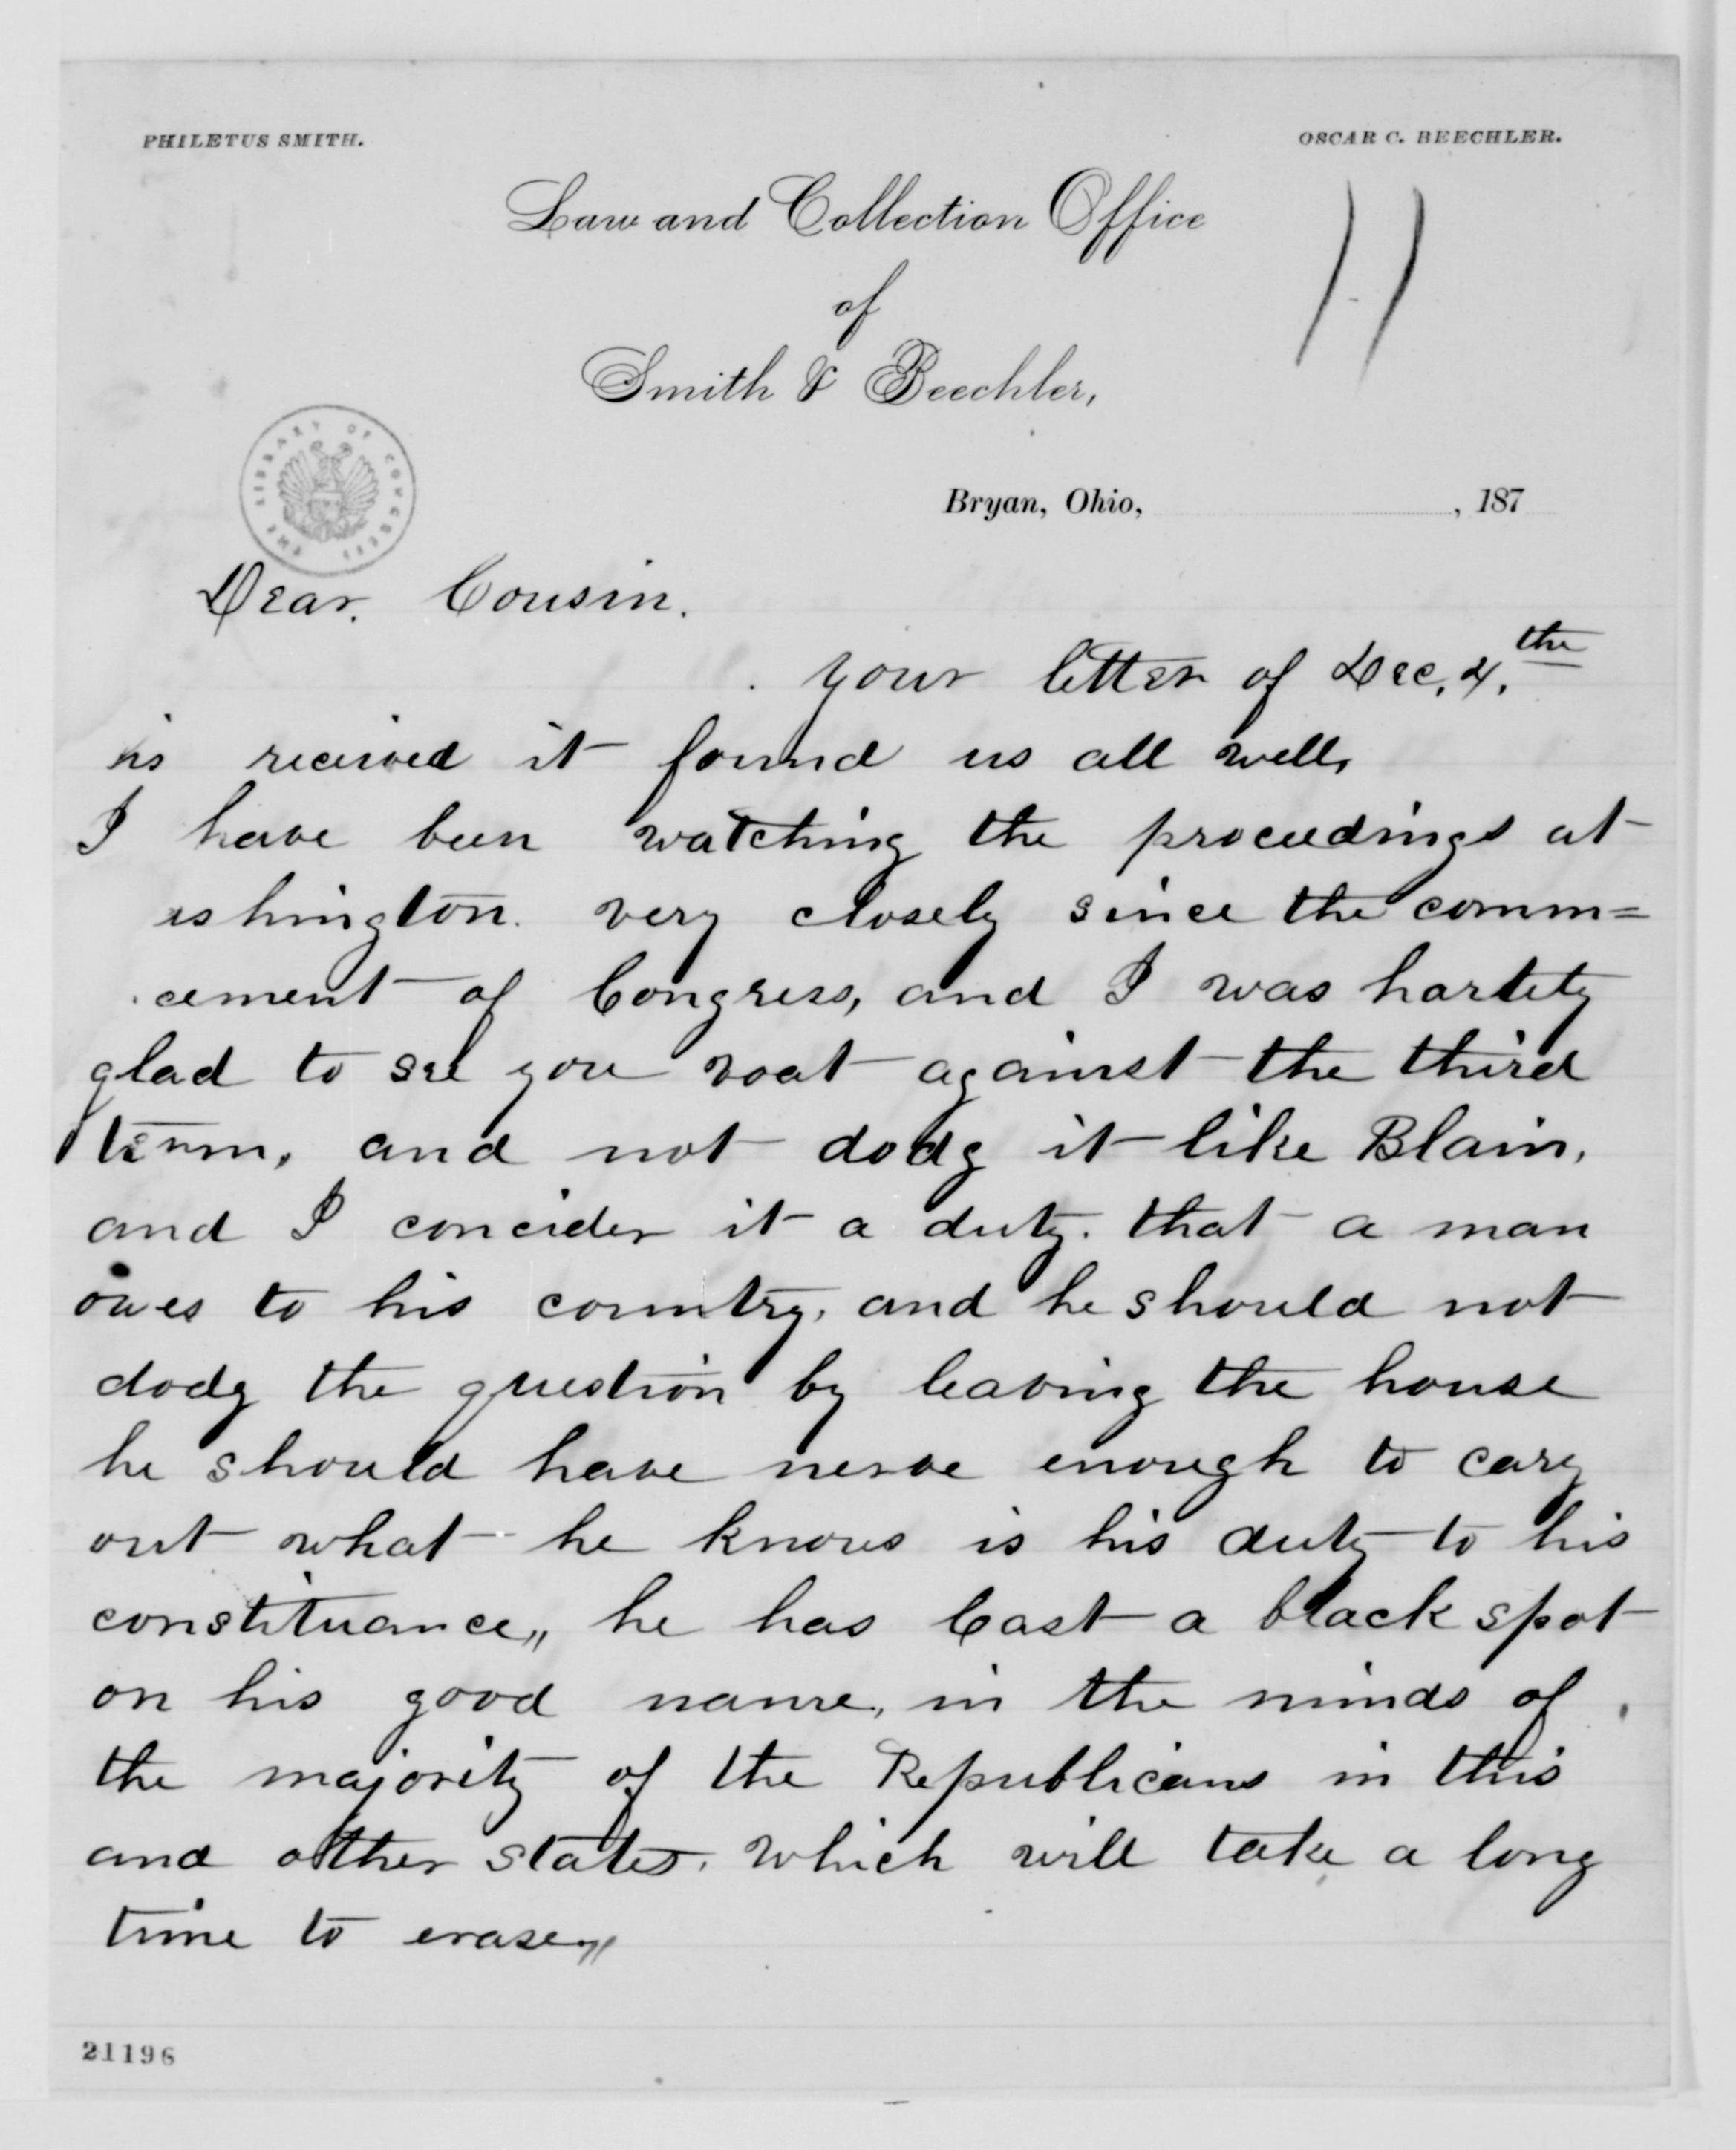 PHILETUS SMITH.
OSCAR C. BEECHLER.
Law and Collection Office
of
Smith & Beechler,
THE LIBRARY OF CONGRESS
Bryan, Ohio, , 187
Dear. Cousin.
your letter of Dec, 4.th
is recieved it found us all well,
I have been watching the proceedings at
ashington. very closely since the comm=
cement of Congress, and I was hartily
glad to see you voat against the third
term, and not dodg it like Blain,
and I concider it a duty. that a man
owes to his country, and he should not
dodg the question by leaving the house
he should have nerve enough to cary
out what he knows is his duty to his
constituance,, he has Cast a black spot
on his good name, in the minds of
the majority of the Republicans in this
and other states. which will take a long
time to erase,,
21196